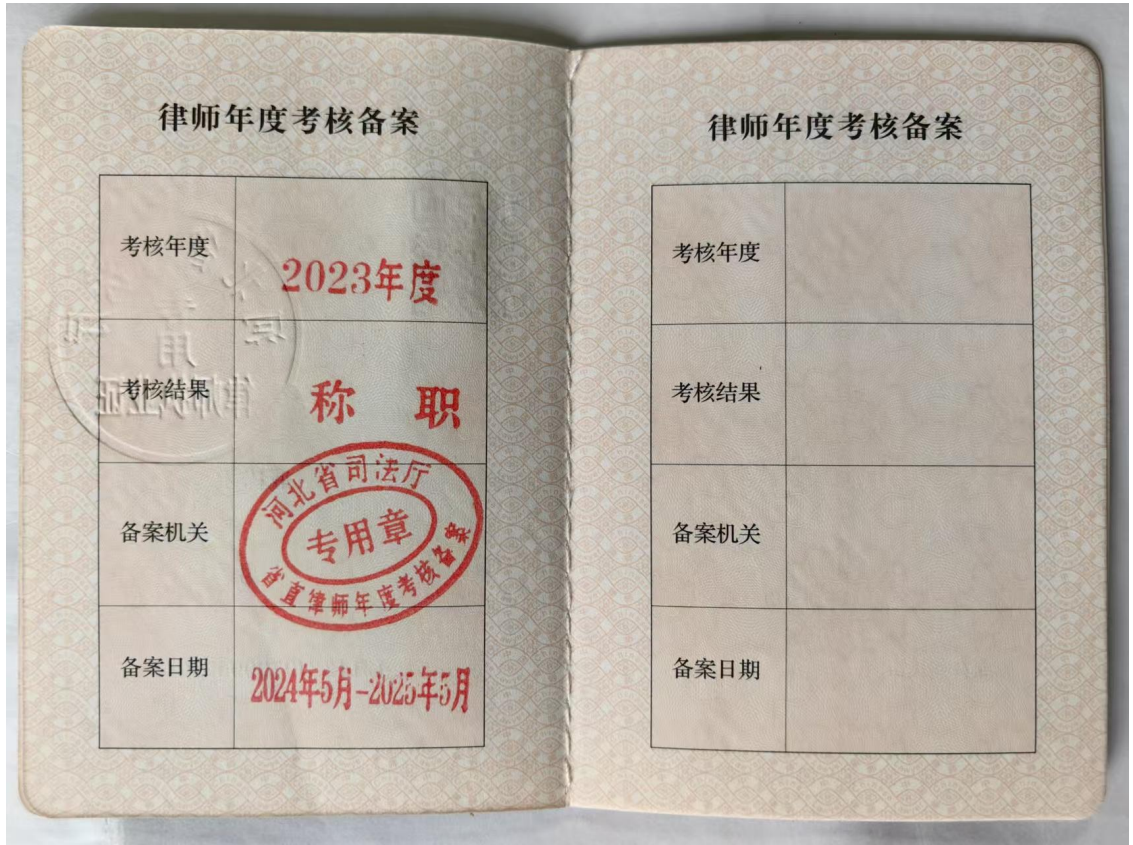 律师年度考核备案
考核年度
2023年度
考核结果
称 职
备案机关
河北省司法厅
专用章
省直律师年度考核备案
备案日期
2024年5月-2025年5月
律师执业证
律师年度考核备案
考核年度
考核结果
备案机关
备案日期